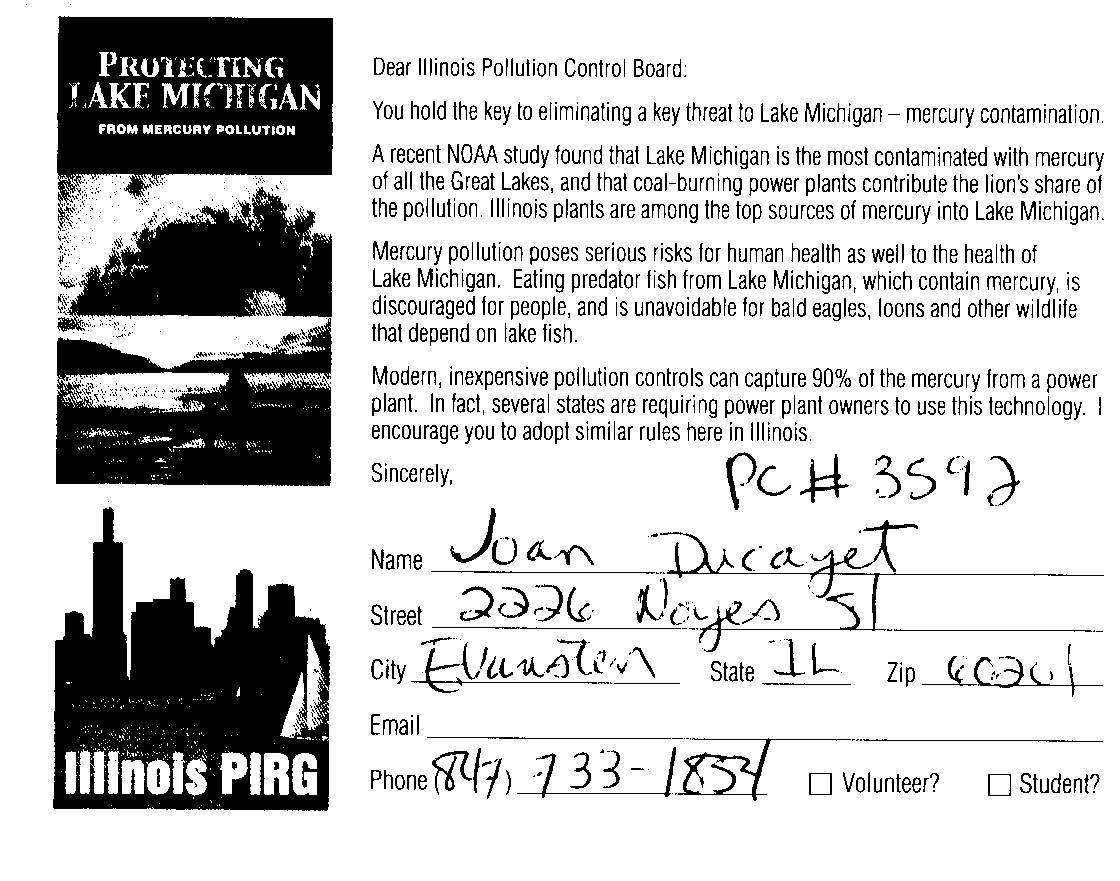 PROTECTING
LAKE MICHIGAN
FROM MERCURY POLLUTION
Dear Illinois Pollution Control Board:
You hold the key to eliminating a key threat to Lake Michigan – mercury contamination.
A recent NOAA study found that Lake Michigan is the most contaminated with mercury
of all the Great Lakes, and that coal-burning power plants contribute the lion's share of
the pollution. Illinois plants are among the top sources of mercury into Lake Michigan.
Mercury pollution poses serious risks for human health as well to the health of
Lake Michigan. Eating predator fish from Lake Michigan, which contain mercury, is
discouraged for people, and is unavoidable for bald eagles, loons and other wildlife
that depend on lake fish.
Modern, inexpensive pollution controls can capture 90% of the mercury from a power
plant. In fact, several states are requiring power plant owners to use this technology. I
encourage you to adopt similar rules here in Illinois.
Sincerely,
PC# 3592
Name Joan Ducayet
Street 2226 Noyes St
City Evanston State IL Zip 60201
Email
Phone (847) 733-1854 Volunteer? Student?
Illinois PIRG